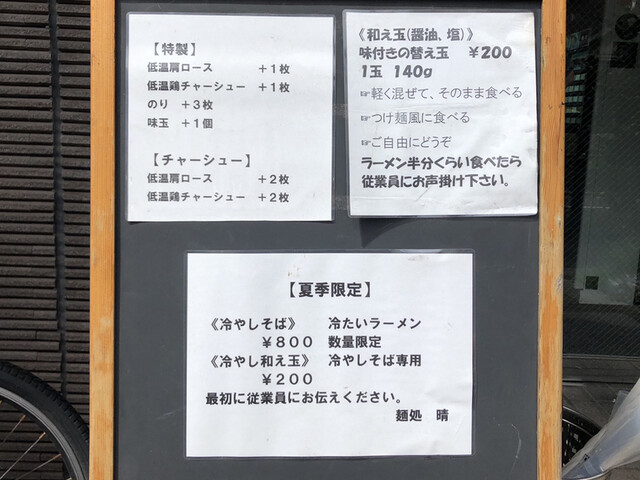 【特製】
低温肩ロース ＋１枚
低温鶏チャーシュー ＋１枚
のり ＋３枚
味玉 ＋１個
【チャーシュー】
低温肩ロース ＋２枚
低温鶏チャーシュー ＋２枚
《和え玉(醤油、塩)》
味付きの替え玉 ￥200
1玉 140g
☞軽く混ぜて、そのまま食べる
☞つけ麺風に食べる
☞ご自由にどうぞ
ラーメン半分くらい食べたら
従業員にお声掛け下さい。
【夏季限定】
《冷やしそば》 冷たいラーメン
￥８００ 数量限定
《冷やし和え玉》 冷やしそば専用
￥２００
最初に従業員にお伝えください。
麺処 晴